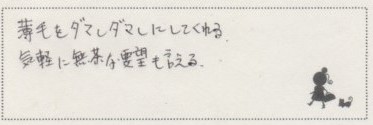 薄毛をダマしダマしにしてくれる.
気軽に無茶な要望も言える.